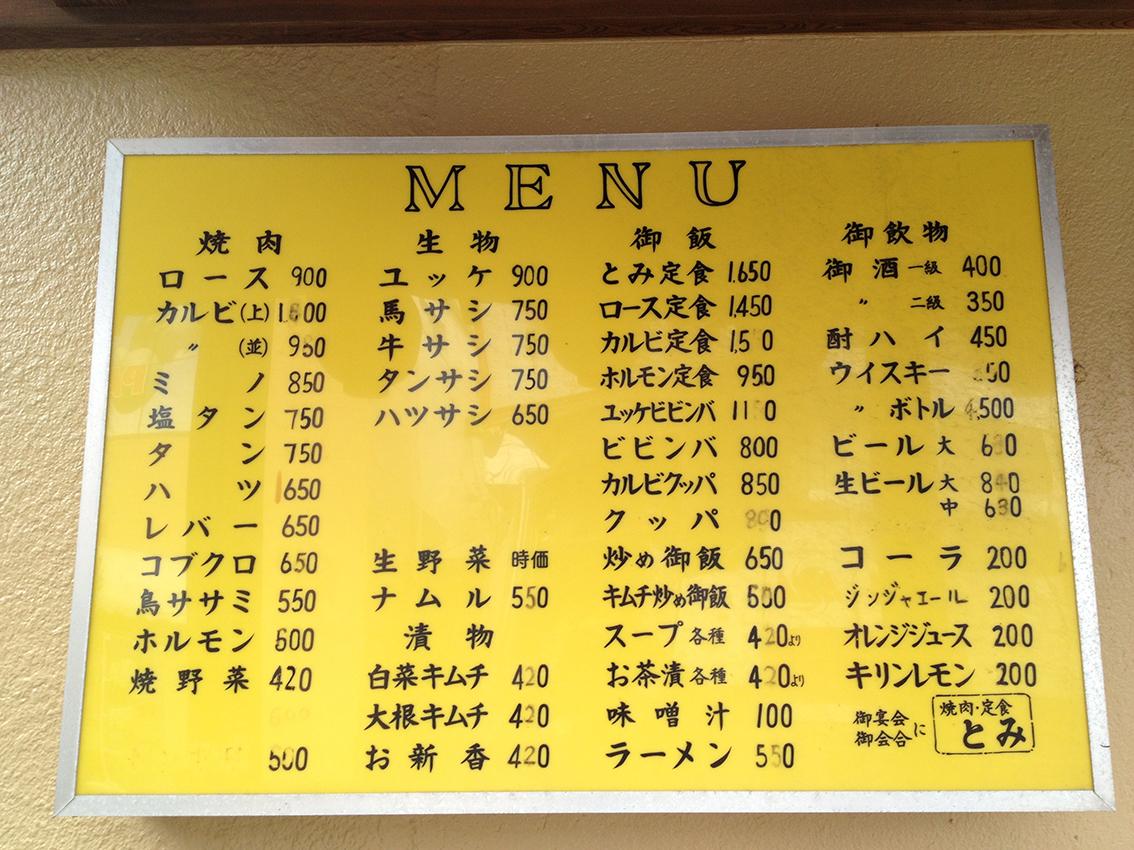 MENU
焼肉
ロース 900
カルビ(上)
〃 (並)
ミノ 850
塩タン 750
タン 750
ハツ 650
レバー 650
コブクロ 650
鳥ササミ 550
ホルモン
焼野菜 420
生物
ユッケ 900
馬サシ 750
牛サシ 750
タンサシ 750
ハツサシ 650
生野菜 時価
ナムル 550
漬物
白菜キムチ 420
大根キムチ 420
お新香 420
御飯
とみ定食 1,650
ロース定食 1,450
カルビ定食
ホルモン定食 950
ユッケビビンバ
ビビンバ 800
カルビクッパ 850
クッパ
炒め御飯 650
キムチ炒め御飯
スープ各種 420より
お茶漬各種 420より
味噌汁 100
ラーメン 550
御飲物
御酒 一級 400
〃 二級 350
酎ハイ 450
ウイスキー
〃 ボトル
ビール 大
生ビール 大 840
中 630
コーラ 200
ジンジャエール 200
オレンジジュース 200
キリンレモン 200
御宴会
御会合に
焼肉・定食
とみ